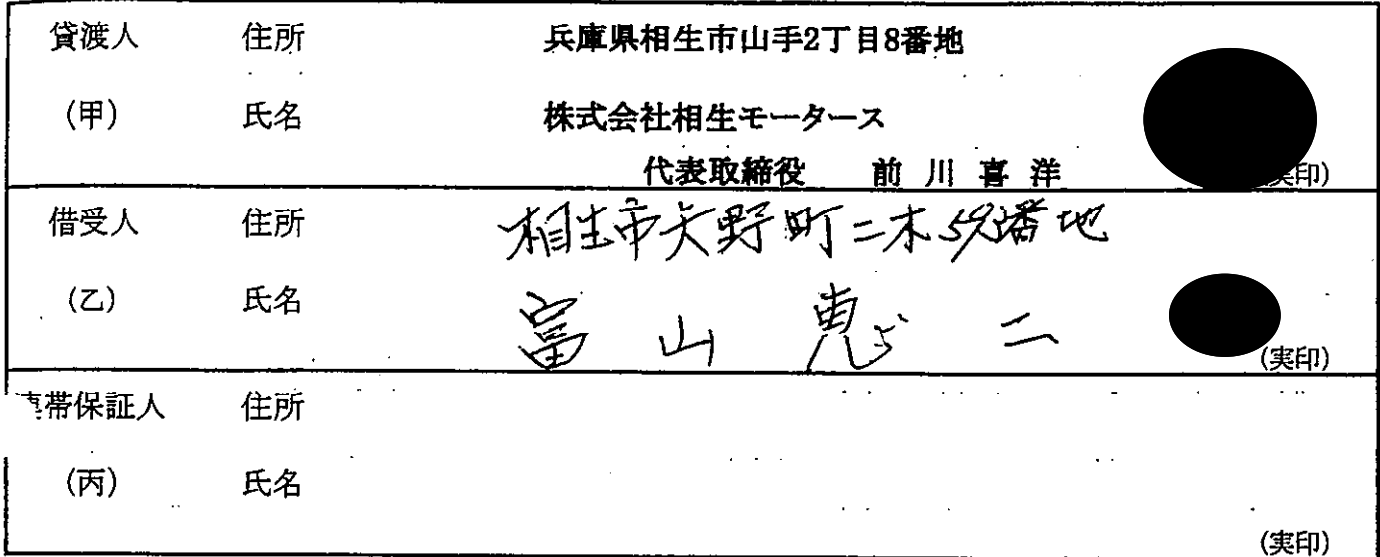 貸渡人 住所 兵庫県相生市山手2丁目8番地
(甲) 氏名 株式会社相生モータース
代表取締役 前川喜洋
実印)
借受人 住所 相生市矢野町二木59番地
(乙) 氏名 富山恵二
(実印)
連帯保証人 住所
(丙) 氏名
(実印)